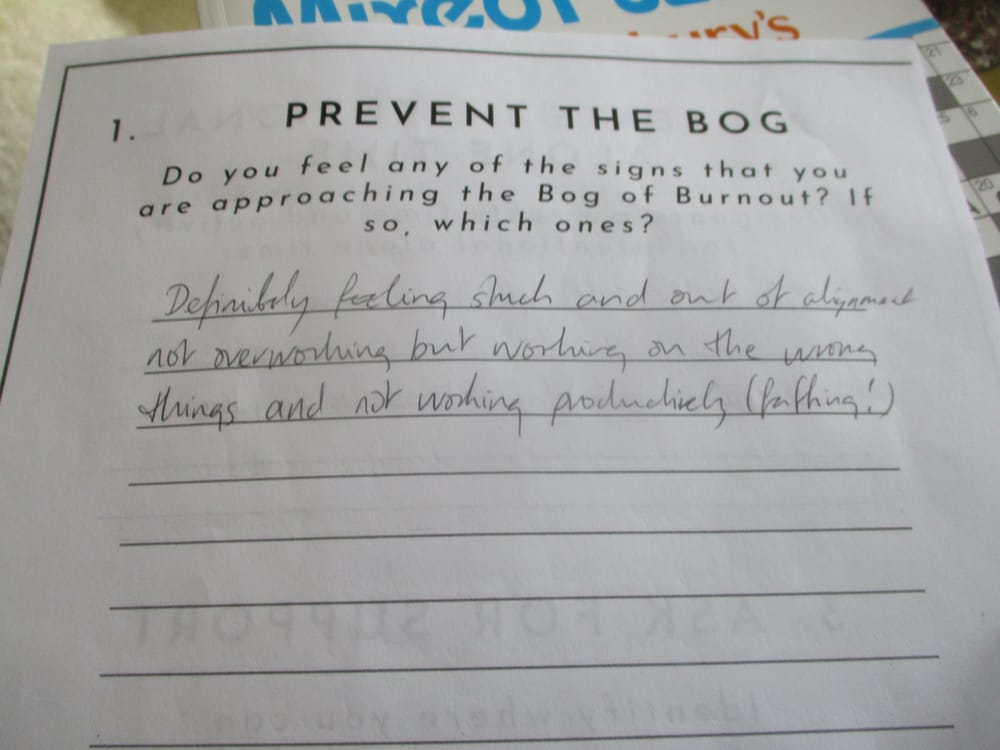 1. PREVENT THE BOG
Do you feel any of the signs that you
are approaching the Bog of Burnout? If
so, which ones?
Definitely feeling stuck and out of alignment
not overworking but working on the wrong
things and not working productively (faffing!)
3. ASK FOR SUPPORT
Identify where you can
21
23
20